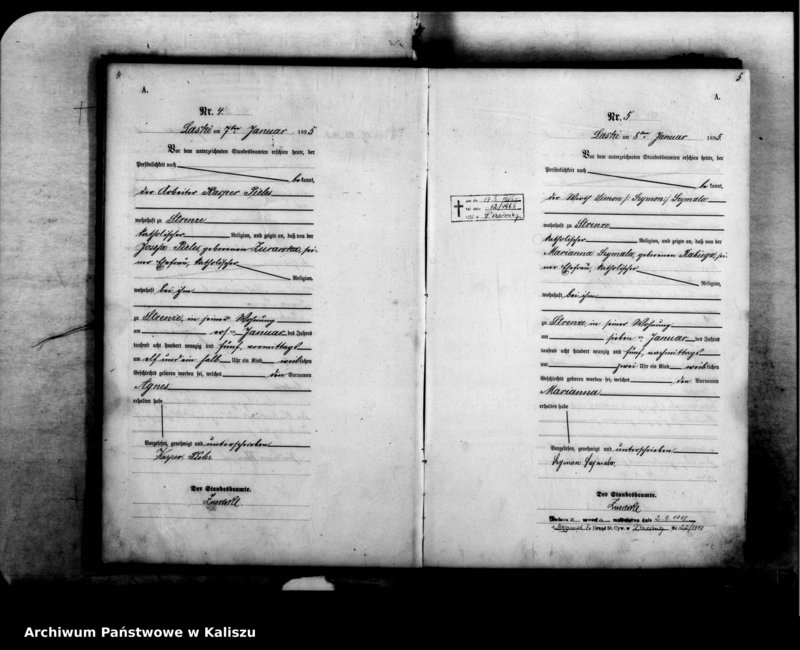 4
A.
Nr. 4.
Laski am 7ten Januar 1895
Vor dem unterzeichneten Standesbeamten erschien heute, der
Persönlichkeit nach
bekannt,
der Arbeiter Kasper
wohnhaft zu Strenze
katholischer Religion, und zeigte an, daß von der
Josefa geborenen Zurawska, sei-
ner Ehefrau, katholischer
Religion,
wohnhaft bei ihm
zu Strenze, in seiner Wohnung
am Januar des Jahres
tausend acht hundert neunzig und fünf, vormittags
um elf und ein halb Uhr ein Kind weiblichen
Geschlechts geboren worden sei, welches den Vornamen
Agnes
erhalten habe
Vorgelesen, genehmigt und unterschrieben
Kasper
Der Standesbeamte.
5
A.
Nr. 5
Laski am 8ten Januar 1895
Vor dem unterzeichneten Standesbeamten erschien heute, der
Persönlichkeit nach
bekannt,
der Wirth Simon /: Szymon :/ Szymala
wohnhaft zu Strenze
katholischer Religion, und zeigte an, daß von der
Marianna Szymala, geborenen sei-
ner Ehefrau, katholischer
Religion,
wohnhaft bei ihm
zu Strenze, in seiner Wohnung
am sieben ten Januar des Jahres
tausend acht hundert neunzig und fünf, nachmittags
um zwei Uhr ein Kind weiblichen
Geschlechts geboren worden sei, welches den Vornamen
Marianna
erhalten habe
Vorgelesen, genehmigt und unterschrieben
Szymon Szymala
Der Standesbeamte.
Archiwum Państwowe w Kaliszu